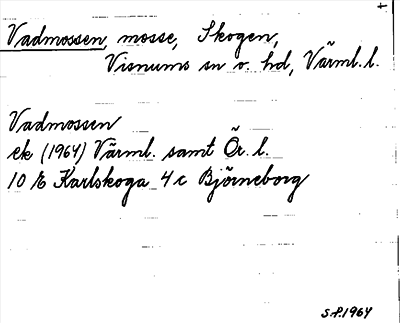 +
Vadmossen, mosse, Skogen,
Visnums sn o. hd, Värml. l.
Vadmossen
ek (1964) Värml. samt Ör. l.
10 E Karlskoga 4 c Björneborg
S.P. 1964